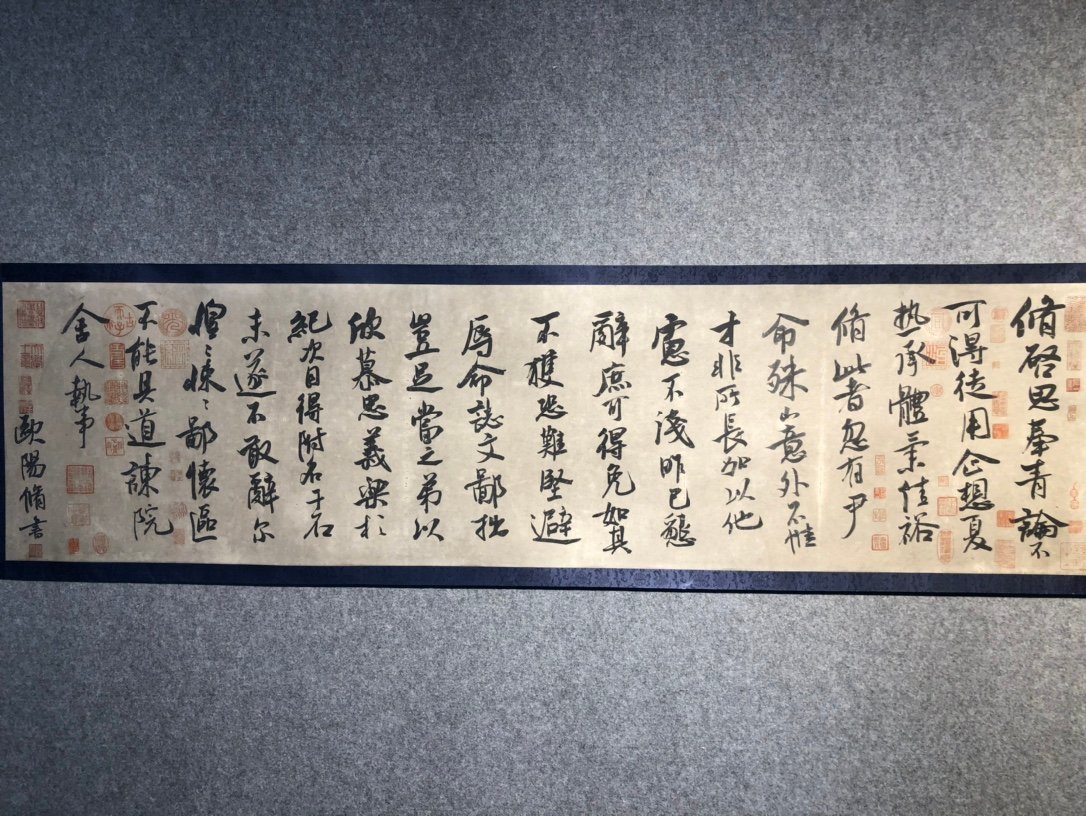 脩啓思奉青論不
可得徒用企想夏
热承體氣佳裕
脩此者忽有尹
命殊出意外不惟
才非所長加以他
慮不淺昨已懇
辭庶可得免如其
不獲恐難堅避
爲命誌文鄙拙
豈足當之弟以
欣慕思義樂於
紀次目得附名于石
未遂不敢辭尔
惶〻悚〻鄙懷區
不能具道諫院
舍人執事
歐陽脩書